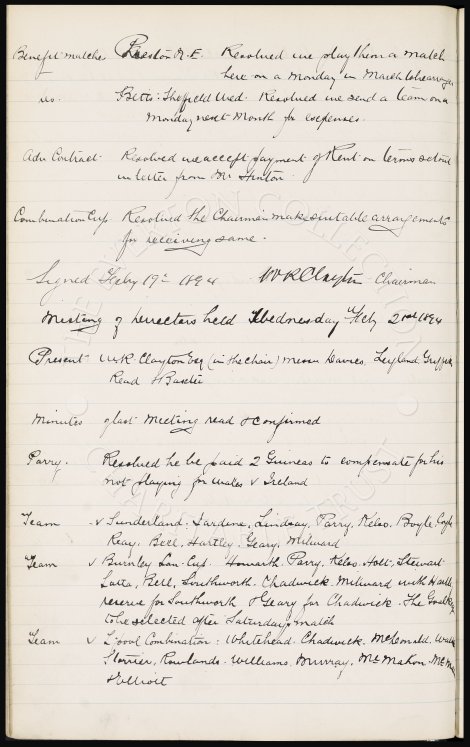 Benefit matches Preston N.E. Resolved we play them a match
here on a Monday in March
do. Betts: Sheffield Wed. Resolved we send a team on a
Monday next Month for expenses.
Adv Contract Resolved we accept payment of Rent on terms set out
in letter from Mr Hinton.
Combination Cup Resolved the Chairman make suitable arrangements
for receiving same.
Signed Feby 19th 1894 W R Clayton Chairman
Meeting of Directors held Wednesday Feb 1894
Present W R Clayton Esq (in the chair) Messrs Davies, Leyland, Griffiths
Read & Baxter
Minutes of last Meeting read & confirmed
Parry. Resolved he be paid 2 Guineas to compensate for his
not playing for Wales v Ireland
Team v Sunderland: Jardine, Lindsay, Parry, Kelso, Boyle, Coyle
Reay, Bell, Hartley, Geary, Milward
Team v Burnley Lan Cup. Howarth, Parry, Kelso, Holt, Stewart
Latta, Bell, Southworth, Chadwick, Milward with Hartley
reserve for Southworth & Geary for Chadwick. The Goalkeeper
to be selected after Saturdays match
Team v L'pool Combination: Whitehead. Chadwick. McDonald.
Storrier, Rowlands. Williams, Murray, McMahon,
Elliott
THE EVERTON COLLECTION
CHARITABLE TRUST